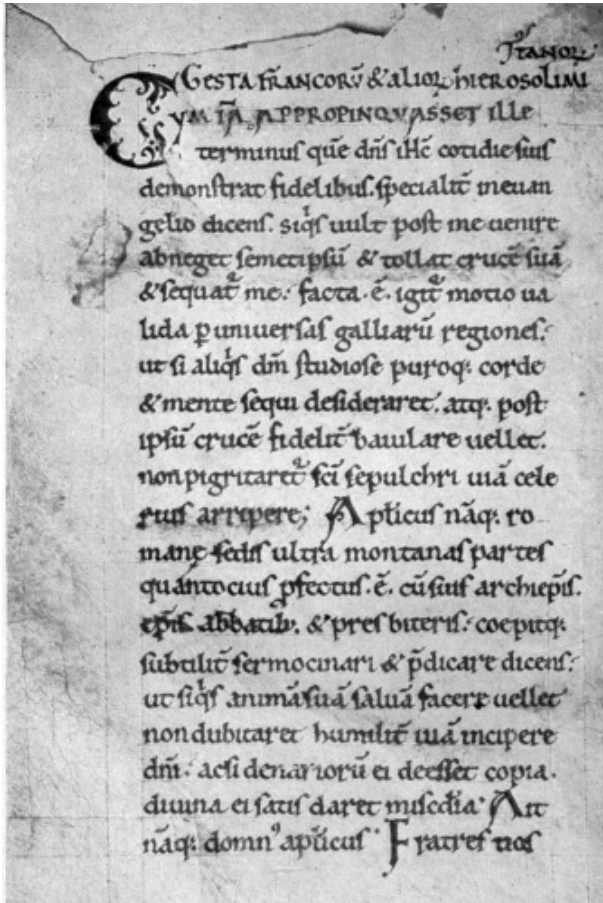 GESTA FRANCORŪ & ALIOꝜ HIEROSOLIMI
TANOꝜ
CUM IĀ APPROPINQUASSET ILLE
terminus quē dn̄s ih̄c cotidie suis
demonstrat fidelibus. specialit̄ in euan
gelio dicens. siq̇s uult post me uenire
abneget semetipsū & tollat crucē suā
& sequat᷑ me. facta. ē. igit᷑ motio ua
lida ꝑ uniuersas galliarū regiones.
ut si aliq̇s dm̄ studiose puroq; corde
& mente sequi desideraret. atq; post
ipsū crucē fidelit̄ baiulare uellet.
non pigritaret᷑ sc̄i sepulchri uiā cele
rius arripere; Apl̄icus nāq; ro
manę sedis ultra montanas partes
quantocius ꝓfectus. ē. cū suis archiep̄is.
ep̄is. abbatib; & presbiteris. coepitq;
subtilit̄ sermocinari & p̄dicare dicens.
ut siq̇s animā suā saluā facere uellet
non dubitaret humilit̄ uiā incipere
dm̄. ac si denariorū ei deesset copia.
diuina ei satis daret misc̄dia. Ait
nāq; domnꝰ apl̄icus. Fratres uos